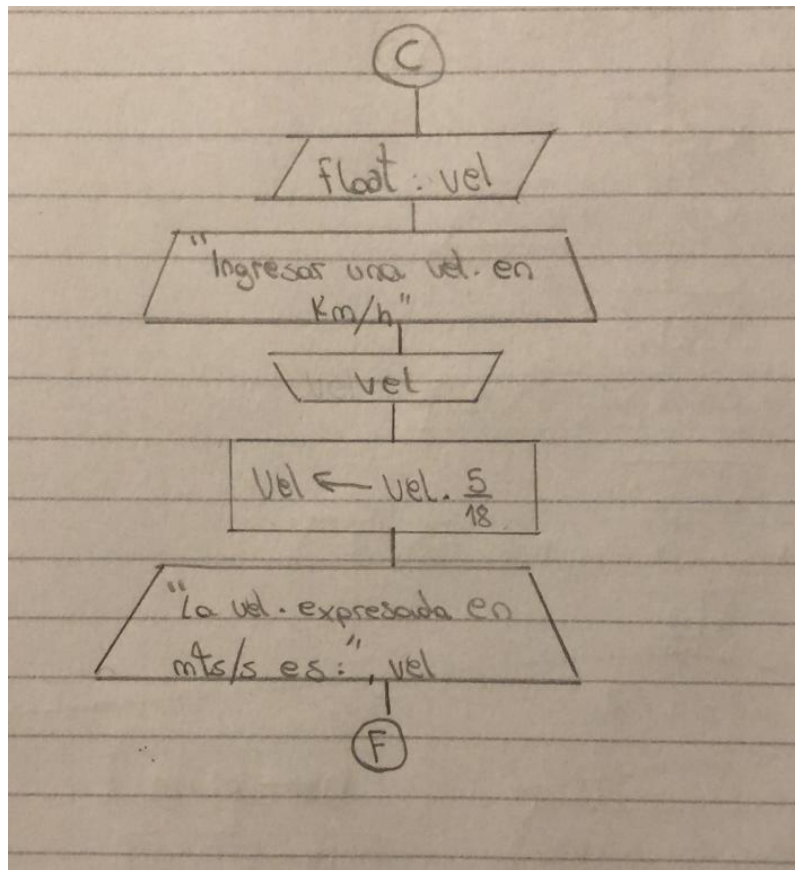 C
float: vel
"Ingresar una vel. en
Km/h"
vel
Vel ← vel. 5/18
"La vel. expresada en
mts/s es:", vel
F